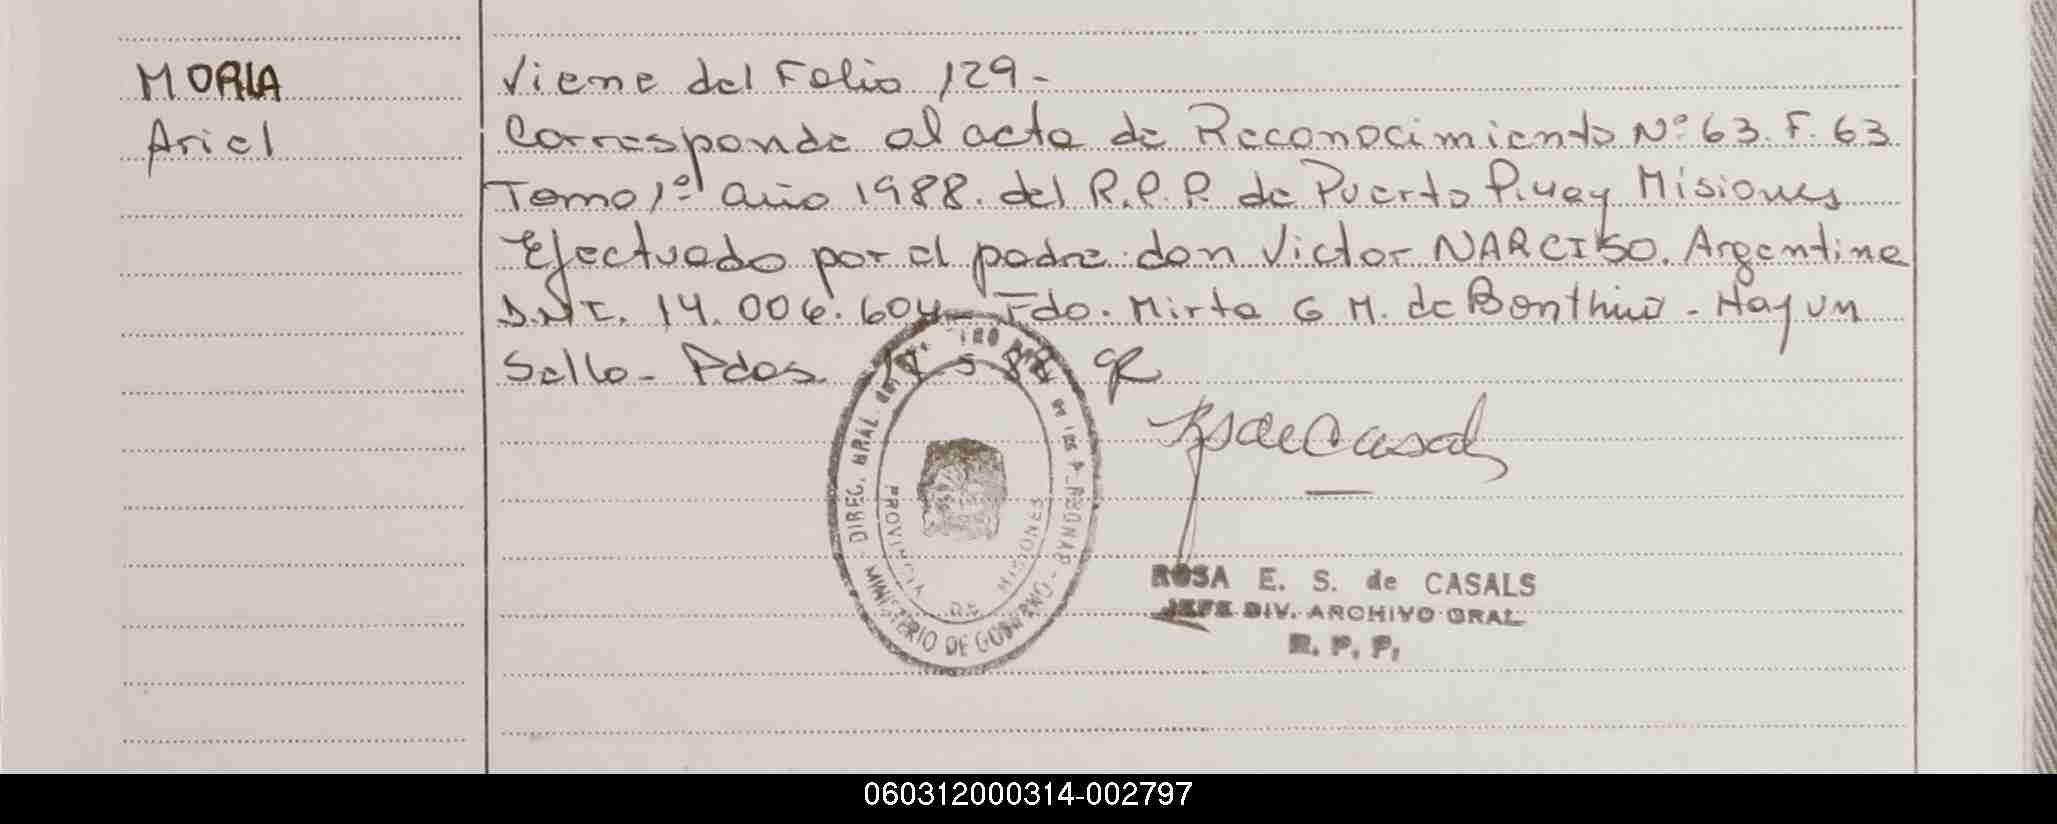 MORLA
Ariel
Viene del Folio 129-
Corresponde al acta de Reconocimiento Nº 63. F. 63
Tomo 1º año 1988. del R.P.P. de Puerto Pivay Misiones
Efectuado por el padre don Victor NARCISO. Argentino
D.N.I. 14.006.604- Fdo. Mirta G M. de - Hay un
Sello- Pdas. 5 88
DIREC. GRAL. de los
MINISTERIO DE GOBIERNO
PROVINCIA DE MISIONES
ROSA E. S. de CASALS
JEFE DIV. ARCHIVO GRAL
R. P. P.
060312000314-002797